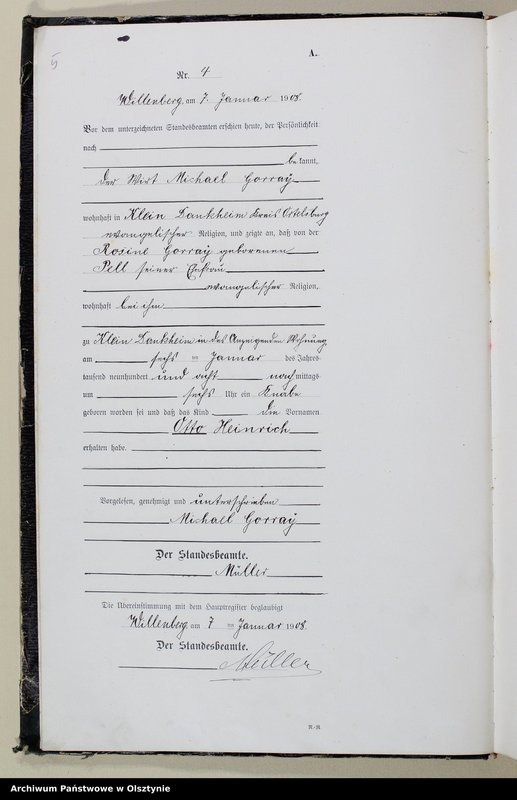 5
A.
Nr. 4
Willenberg, am 7. Januar 1908.
Vor dem unterzeichneten Standesbeamten erschien heute, der Persönlichkeit
nach
be kannt,
der Wirt Michael Gorray
wohnhaft in Klein Dankheim Kreis Ortelsburg
evangelischer Religion, und zeigte an, daß von der
Rosine Gorray geborenen
Pell seiner Ehefrau
evangelischer Religion,
wohnhaft bei ihm
zu Klein Dankheim in des Anzeigenden Wohnung
am sechs ten Januar des Jahres
tausend neunhundert und acht nachmittags
um sechs Uhr ein Knabe
geboren worden sei und daß das Kind die Vornamen
Otto Heinrich
erhalten habe.
Vorgelesen, genehmigt und unterschrieben
Michael Gorray
Der Standesbeamte.
Müller
Die Übereinstimmung mit dem Hauptregister beglaubigt
Willenberg, am 7 ten Januar 1908.
Der Standesbeamte.
Müller
Archiwum Państwowe w Olsztynie